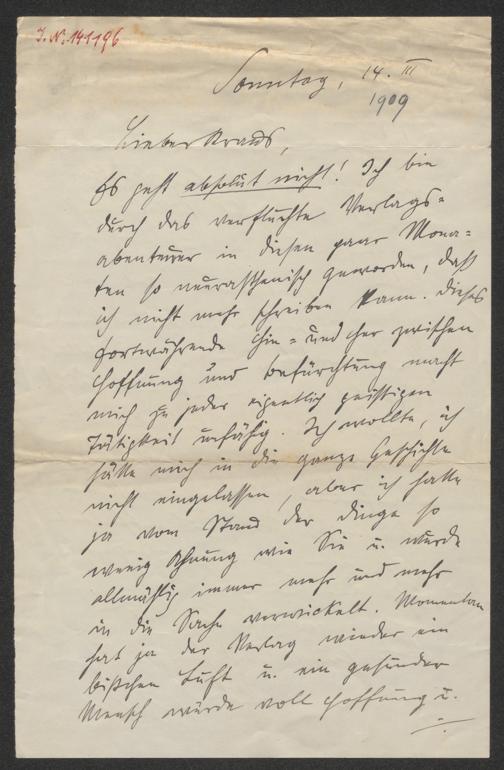 I. N. 141196
Sonntag, 14. III
1909
Lieber Kraus,
Es geht absolut nicht! Ich bin
durch das verfluchte Verlags-
abenteuer in diesen paar Mona-
ten so neurasthenisch geworden, daß
ich nicht mehr schreiben kann. Dieses
fortwährende Hin- und her zwischen
Hoffnung und Befürchtung macht
mich zu jeder eigentlich geistigen
Tätigkeit unfähig. Ich wollte, ich
hätte mich in die ganze Geschichte
nicht eingelassen, aber ich hatte
ja vom Stand der Dinge so
wenig Ahnung wie Sie u. wurde
allmählig immer mehr und mehr
in die Sache verwickelt. Momentan
hat ja der Verlag wieder ein
bißchen Luft u. ein gesunder
Mensch würde voll Hoffnung u.